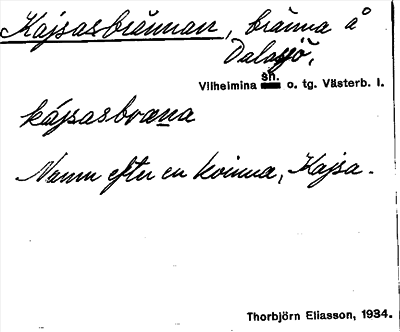 Kajsasbrännan, bränna å
Dalasjö,
sn.
Vilhelmina o. tg. Västerb. l.
kájsasbrana
Namn efter en kvinna, Kajsa.
Thorbjörn Eliasson, 1934.